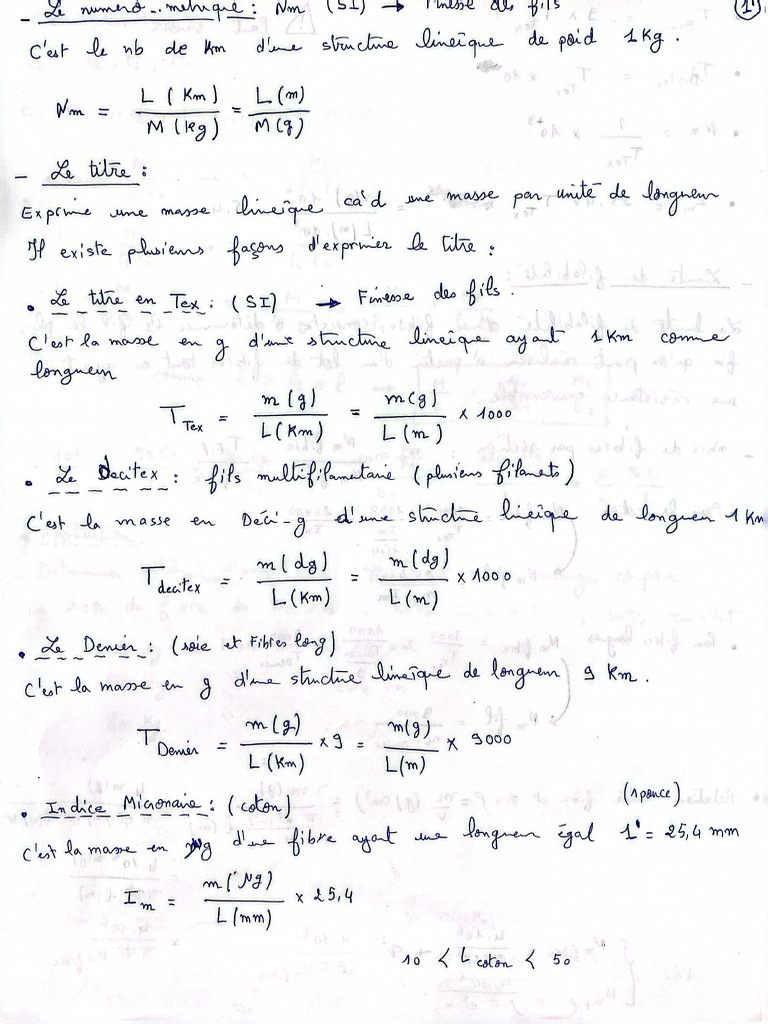 - Le numéro-métrique : Nm (SI) → Finesse des fils
1
C'est le nb de Km d'une structure lineïque de poid 1Kg.
Nm = L(Km)/M(kg) = L(m)/M(g)
- Le titre :
Exprime une masse lineïque cà'd une masse par unité de longueur
Il existe plusieurs façons d'exprimer le titre :
• Le titre en Tex : (SI) → Finesse des fils.
C'est la masse en g d'une structure lineïque ayant 1Km comme
longueur
T Tex = m(g)/L(Km) = m(g)/L(m) × 1000
• Le decitex : fils multifilamentaire (plusieurs filaments)
C'est la masse en Déci-g d'une structure lineïque de longueur 1Km
T decitex = m(dg)/L(Km) = m(dg)/L(m) × 1000
• Le Denier : (soie et Fibres long)
C'est la masse en g d'une structure lineïque de longueur 9 Km.
T Denier = m(g)/L(Km) × 9 = m(g)/L(m) × 9000
• Indice Micronaire : (coton) (1 pouce)
C'est la masse en µg d'une fibre ayant une longueur égal 1" = 25,4 mm
Im = m(µg)/L(mm) × 25,4
10 < L coton < 50